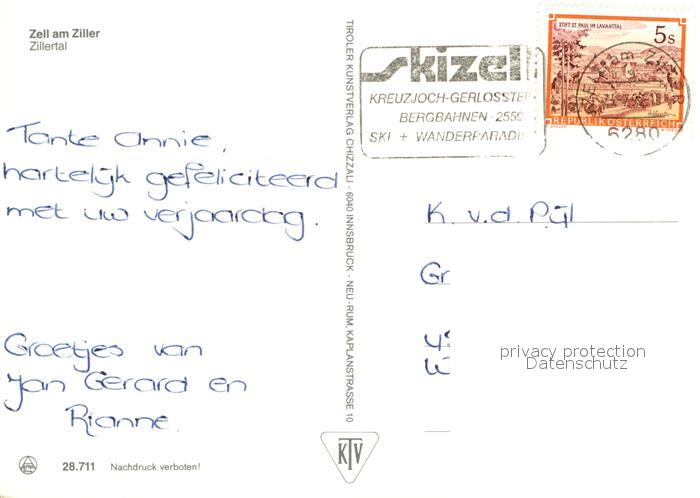 Zell am Ziller
Zillertal
Tante Annie,
hartelijk gefeliciteerd
met uw verjaardag.
Groetjes van
Jan Gerard en
Rianne.
28.711 Nachdruck verboten!
TIROLER KUNSTVERLAG CHIZZALI - 6040 INNSBRUCK - NEU-RUM, KAPLANSTRASSE 10
KTV
skizell
KREUZJOCH-GERLOSSTEI
BERGBAHNEN · 2559
SKI + WANDERPARADI
STIFT ST. PAUL IM LAVANTTAL
5 s
REPUBLIK ÖSTERREICH
6280
K. v.d. Pijl
Gr
privacy protection
Datenschutz